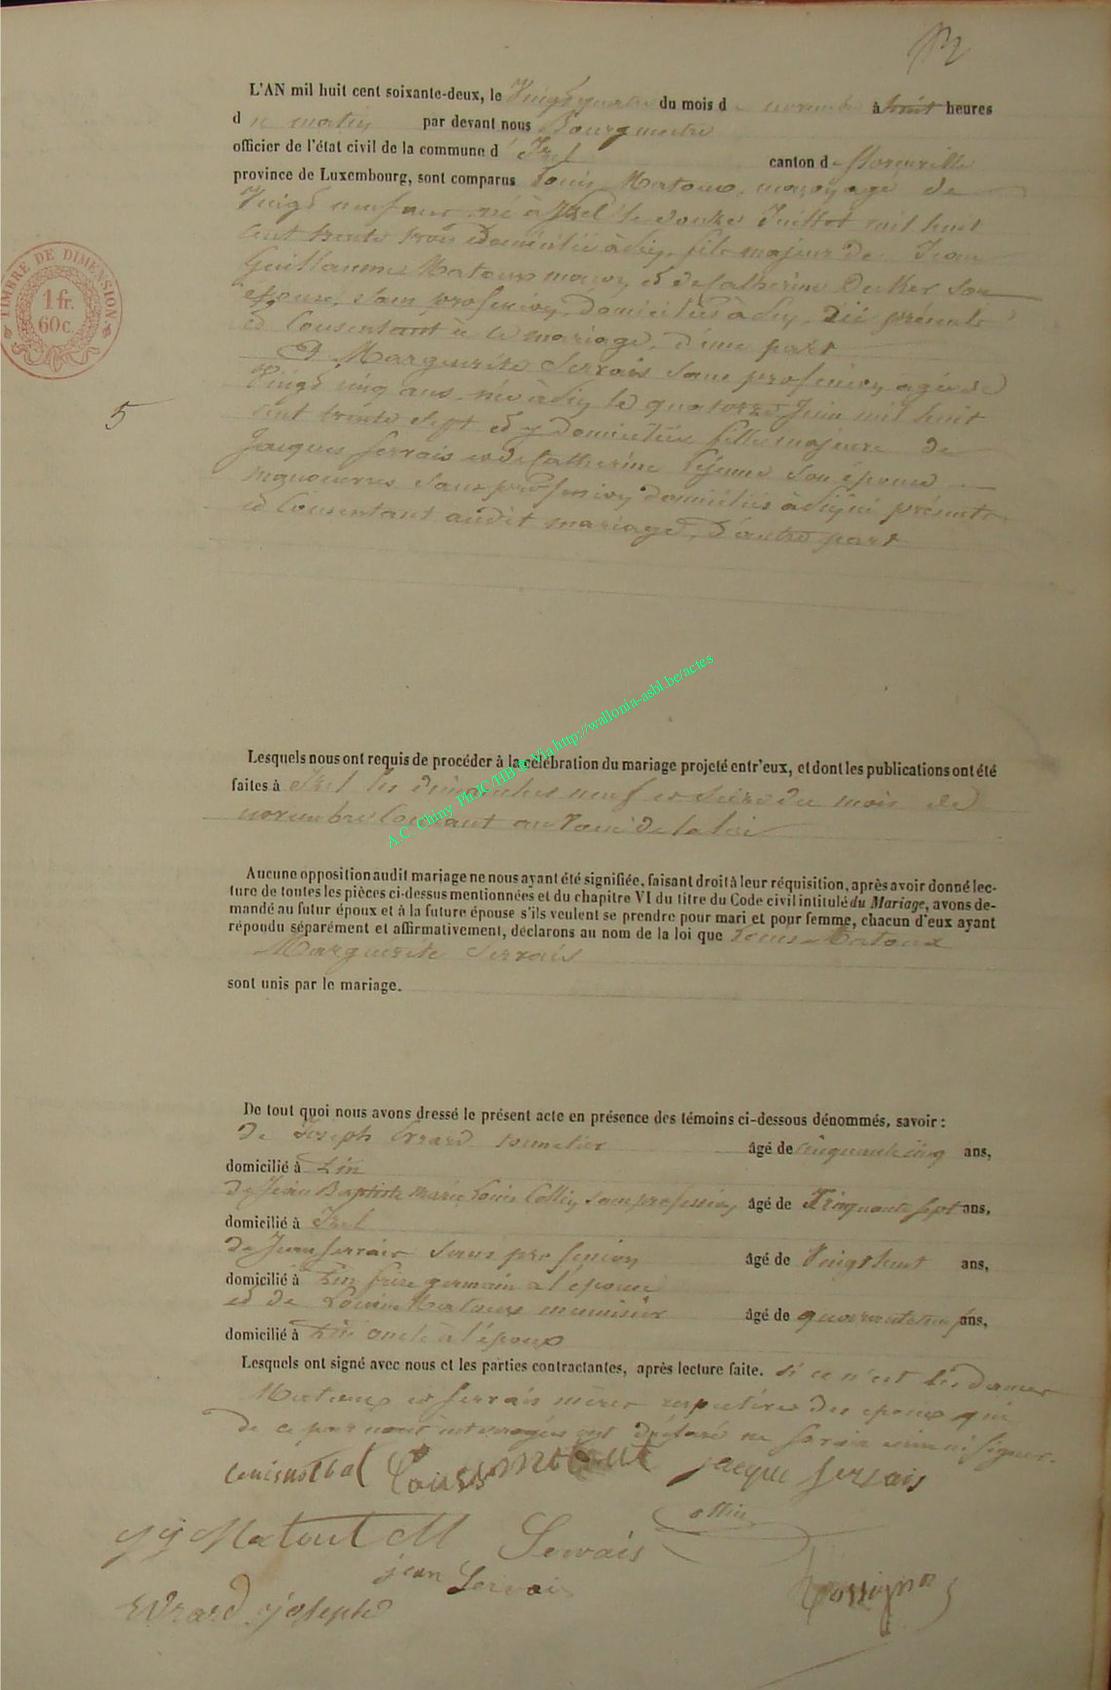 L'AN mil huit cent soixante-deux, le Vingt quatre du mois de novembre à huit heures
du matin par devant nous Bourgmestre
officier de l'état civil de la commune d'Izel canton de Florenville
province de Luxembourg, sont comparus Louis Matoux, maçon, agé de
Vingt neuf ans, né à Izel le Juillet mil huit
cent trente trois domicilié à fils majeur de Jean
Guillaume Matoux maçon, et de Catherine Decker son
épouse, sans profession, domiciliés à présents
et Consentant à ce mariage, d'une part
Et Marguerite Servais sans profession agée de
Vingt cinq ans, née à le quatorze Juin mil huit
cent trente sept et y domiciliée fille majeure de
Jacques Servais et de Catherine Lejeune son épouse
sans profession domiciliés à présents
et Consentant audit mariage, d'autre part
5
TIMBRE DE DIMENSION
1 fr.
60c.
Lesquels nous ont requis de procéder à la célébration du mariage projeté entr'eux, et dont les publications ont été
faites à Izel les dimanches neuf et seize du mois de
novembre Courant au vœu de la loi
A.C. Chiny Ph.JC/HB & Via http://wallonia-asbl.be/actes
Aucune opposition audit mariage ne nous ayant été signifiée, faisant droit à leur réquisition, après avoir donné lec-
ture de toutes les pièces ci-dessus mentionnées et du chapitre VI du titre du Code civil intitulé du Mariage, avons de-
mandé au futur époux et à la future épouse s'ils veulent se prendre pour mari et pour femme, chacun d'eux ayant
répondu séparément et affirmativement, déclarons au nom de la loi que Louis Matoux
Marguerite Servais
sont unis par le mariage.
De tout quoi nous avons dressé le présent acte en présence des témoins ci-dessous dénommés, savoir :
de Joseph Evrard âgé de cinquante cinq ans,
domicilié à
de Jean Baptiste Marie Louis Collin sans profession, âgé de Cinquante sept ans,
domicilié à Izel
de Jean Servais sans profession âgé de Vingt huit ans,
domicilié à frère germain à l'épouse
et de Louis Matoux menuisier âgé de ans,
domicilié à oncle à l'époux
Lesquels ont signé avec nous et les parties contractantes, après lecture faite. si ce n'est les dames
Matoux et Servais mères respectives des époux qui
de ce par nous interrogées ont déclaré ne savoir écrire ni signer.
Louis jacque servais
Matout M Servais ollin
jean Servais
Evrard joseph Rossignon